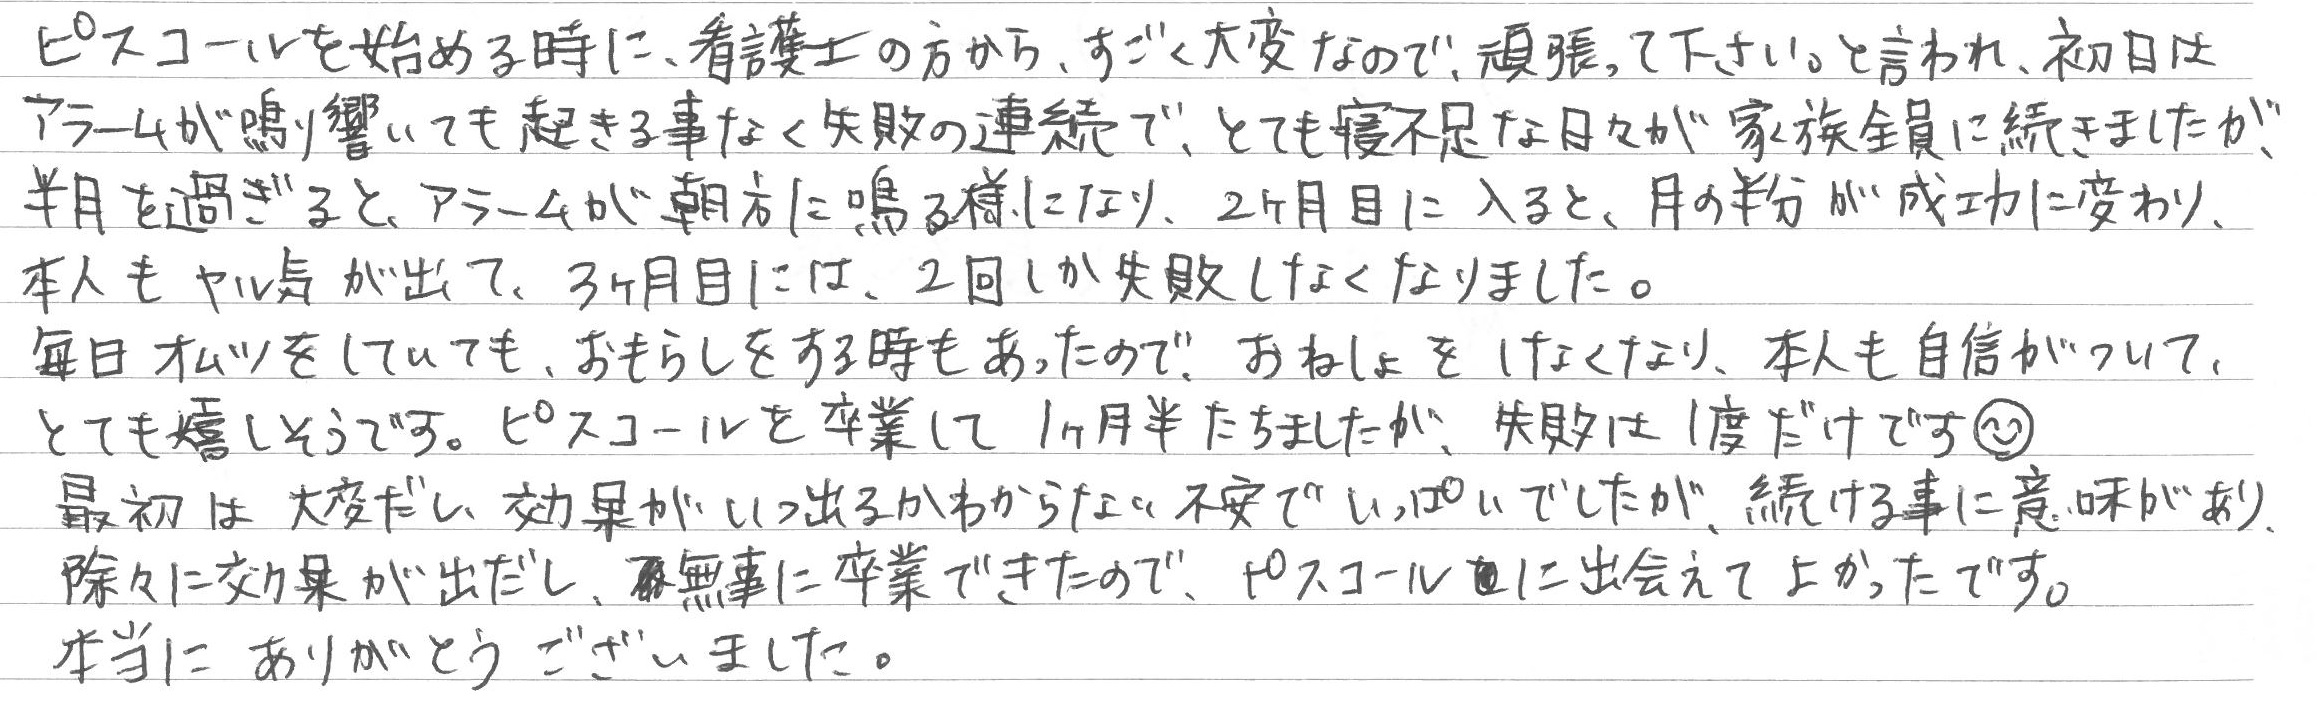 ピスコールを始める時に、看護士の方から、すごく大変なので、頑張って下さい。と言われ、初日は
アラームが鳴り響いても起きる事なく失敗の連続で、とても寝不足な日々が家族全員に続きましたが、
半月を過ぎると、アラームが朝方に鳴る様になり、2ヶ月目に入ると、月の半分が成功に変わり、
本人もヤル気が出て、3ヶ月目には、2回しか失敗しなくなりました。
毎日オムツをしていても、おもらしをする時もあったので、おねしょをしなくなり、本人も自信がついて、
とても嬉しそうです。ピスコールを卒業して1ヶ月半たちましたが、失敗は1度だけです☺
最初は大変だし、効果がいつ出るかわからない不安でいっぱいでしたが、続ける事に意味があり、
除々に効果が出だし、無事に卒業できたので、ピスコールに出会えてよかったです。
本当にありがとうございました。